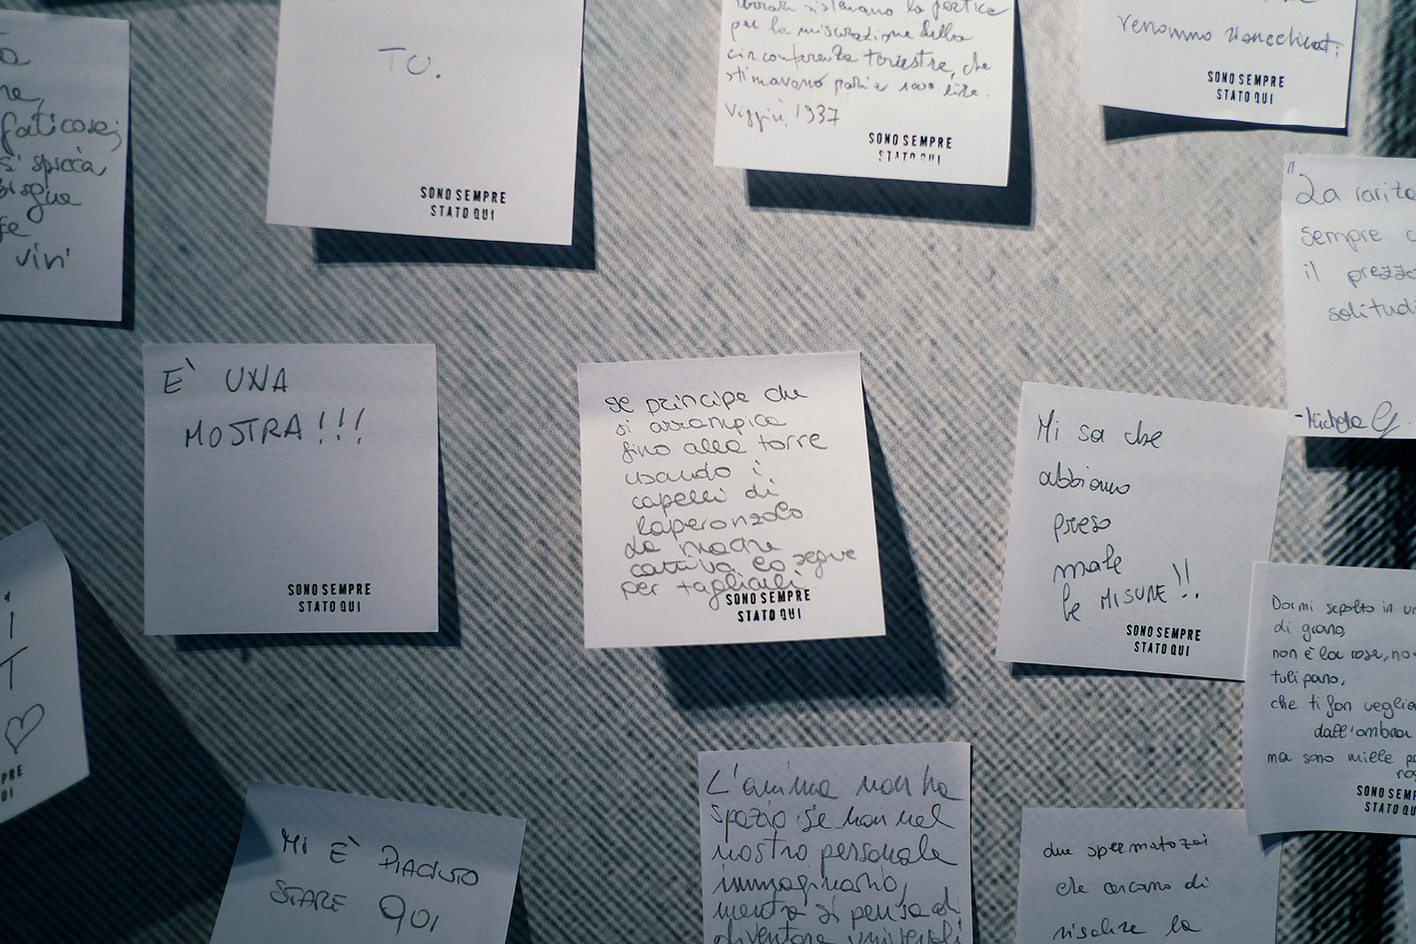 faticose,
si spicca
vin'
TU.
SONO SEMPRE
STATO QUI
per la misurazione della
circonferenza terrestre, che
stimavano pari a 1000 litri.
Viggiù, 1937
SONO SEMPRE
STATO QUI
verranno
SONO SEMPRE
STATO QUI
"La rarità
sempre
il prezzo
solitudi
E' UNA
MOSTRA!!!
SONO SEMPRE
STATO QUI
principe che
si arrampica
fino alla torre
usando i
capelli di
Raperonzolo.
La madre
cattiva lo segue
per tagliarli.
SONO SEMPRE
STATO QUI
Mi sa che
abbiamo
preso
male
le MISURE!!
SONO SEMPRE
STATO QUI
Dormi sepolto in un
di grano,
non è la rosa, non
tulipano,
che ti fan veglia
dall'ombra
ma sono mille pa
SONO SEMP
STATO QU
i
T
PRE
UI
MI E' PIACIUTO
STARE QUI
L'anima non ha
spazio se non nel
nostro personale
immaginario,
mentre si pensa di
diventare universali
due spermatozoi
che cercano di
risalire la